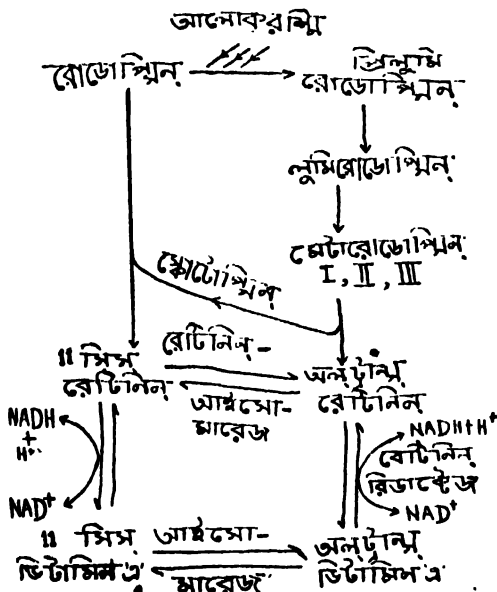 আলোকরশ্মি
রোডোপ্সিন
প্রিলুমি
রোডোপ্সিন
লুমিরোডোপ্সিন
মেটারোডোপ্সিন
I, II, III
স্কোটোপ্সিন
11 সিস্
রেটিনিন
রেটিনিন-
আইসো-
মারেজ
অল্ ট্রান্স্
রেটিনিন
NADH
+
H+
NAD+
NADH+H+
রেটিনিন
রিডাক্টেজ
NAD+
11 সিস্
ভিটামিন এ
আইসো-
মারেজ
অল্ ট্রান্স্
ভিটামিন এ